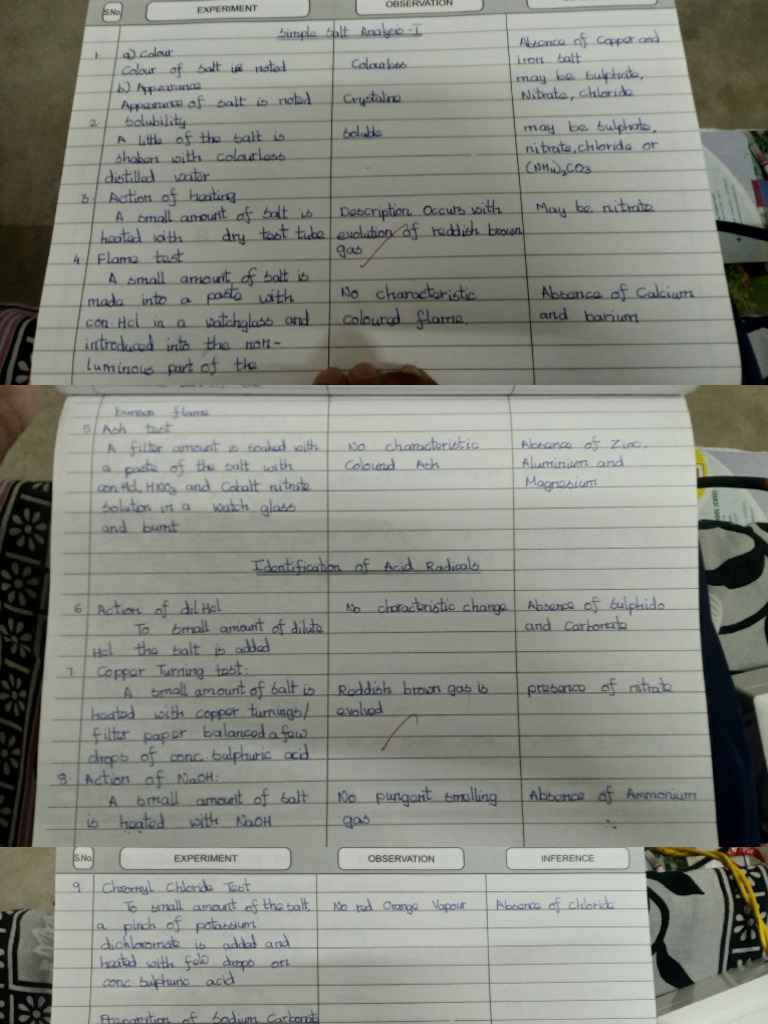 S.No. EXPERIMENT OBSERVATION
Simple Salt Analysis-I
1. a) Colour
Colour of Salt is noted
Colourless
Absence of Copper and
iron Salt
b) Appearance
Appearance of Salt is noted
Crystaline
may be Sulphate,
Nitrate, chloride
2. Solubility
A little of the Salt is
shaken with colourless
distilled water
Soluble
may be Sulphate,
nitrate, chloride or
(NH4)2CO3
3. Action of heating
A Small amount of Salt is
heated with dry test tube
Description occurs with
evolution of reddish brown
gas
May be nitrate
4. Flame test
A Small amount of Salt is
made into a paste with
con Hcl in a watchglass and
introduced into the non-
luminous part of the
No characteristic
coloured flame.
Absence of Calcium
and barium
bunsen flame
5. Ash test
A filter amount is soaked with
a paste of the Salt with
con Hcl, HNO3 and Cobalt nitrate
Solution in a watch glass
and burnt
No characteristic
Coloured Ash
Absence of Zinc,
Aluminium and
Magnesium
Identification of Acid Radicals
6. Action of dil Hcl
To Small amount of dilute
Hcl the Salt is added
No characteristic change
Absence of Sulphide
and Carbonate
7. Copper Turning test:
A Small amount of Salt is
heated with copper turnings/
filter paper balanced a few
drops of conc. Sulphuric acid
Reddish brown gas is
evolved
presence of nitrate
8. Action of NaOH:
A Small amount of Salt
is heated with NaOH
No pungent Smelling
gas
Absence of Ammonium
S.No. EXPERIMENT OBSERVATION INFERENCE
9. Chromyl Chloride Test
To Small amount of the Salt,
a pinch of potassium
dichloromate is added and
heated with few drops on
conc Sulphuric acid
No red Orange Vapour
Absence of chloride
Preparation of Sodium Carbonate